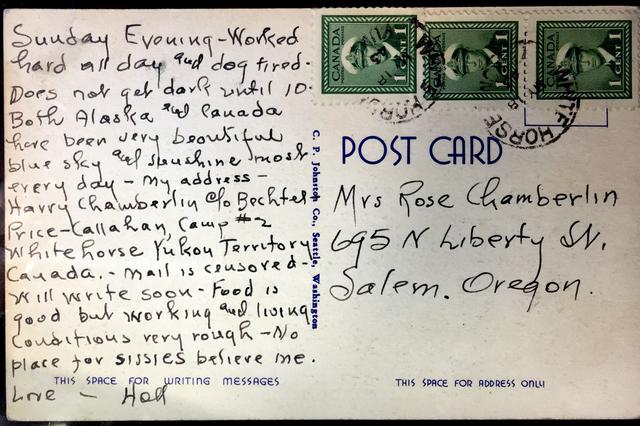 Sunday Evening - Worked
hard all day and dog tired.
Does not get dark until 10.
Both Alaska and Canada
have been very beautiful
blue sky and sunshine most
every day - My address -
Harry Chamberlin c/o Bechtel-
Price-Callahan, Camp #2
Whitehorse Yukon Territory
Canada. - Mail is censored -
Will write soon - Food is
good but working and living
conditions very rough - No
place for sissies believe me.
THIS SPACE FOR WRITING MESSAGES
Love -
C. P. Johnston Co., Seattle, Washington
CANADA 1 CENT 1
CANADA 1 CENT 1
CANADA 1 CENT 1
WHITE HORSE
POST CARD
Mrs Rose Chamberlin
695 N Liberty St.
Salem. Oregon.
THIS SPACE FOR ADDRESS ONLY